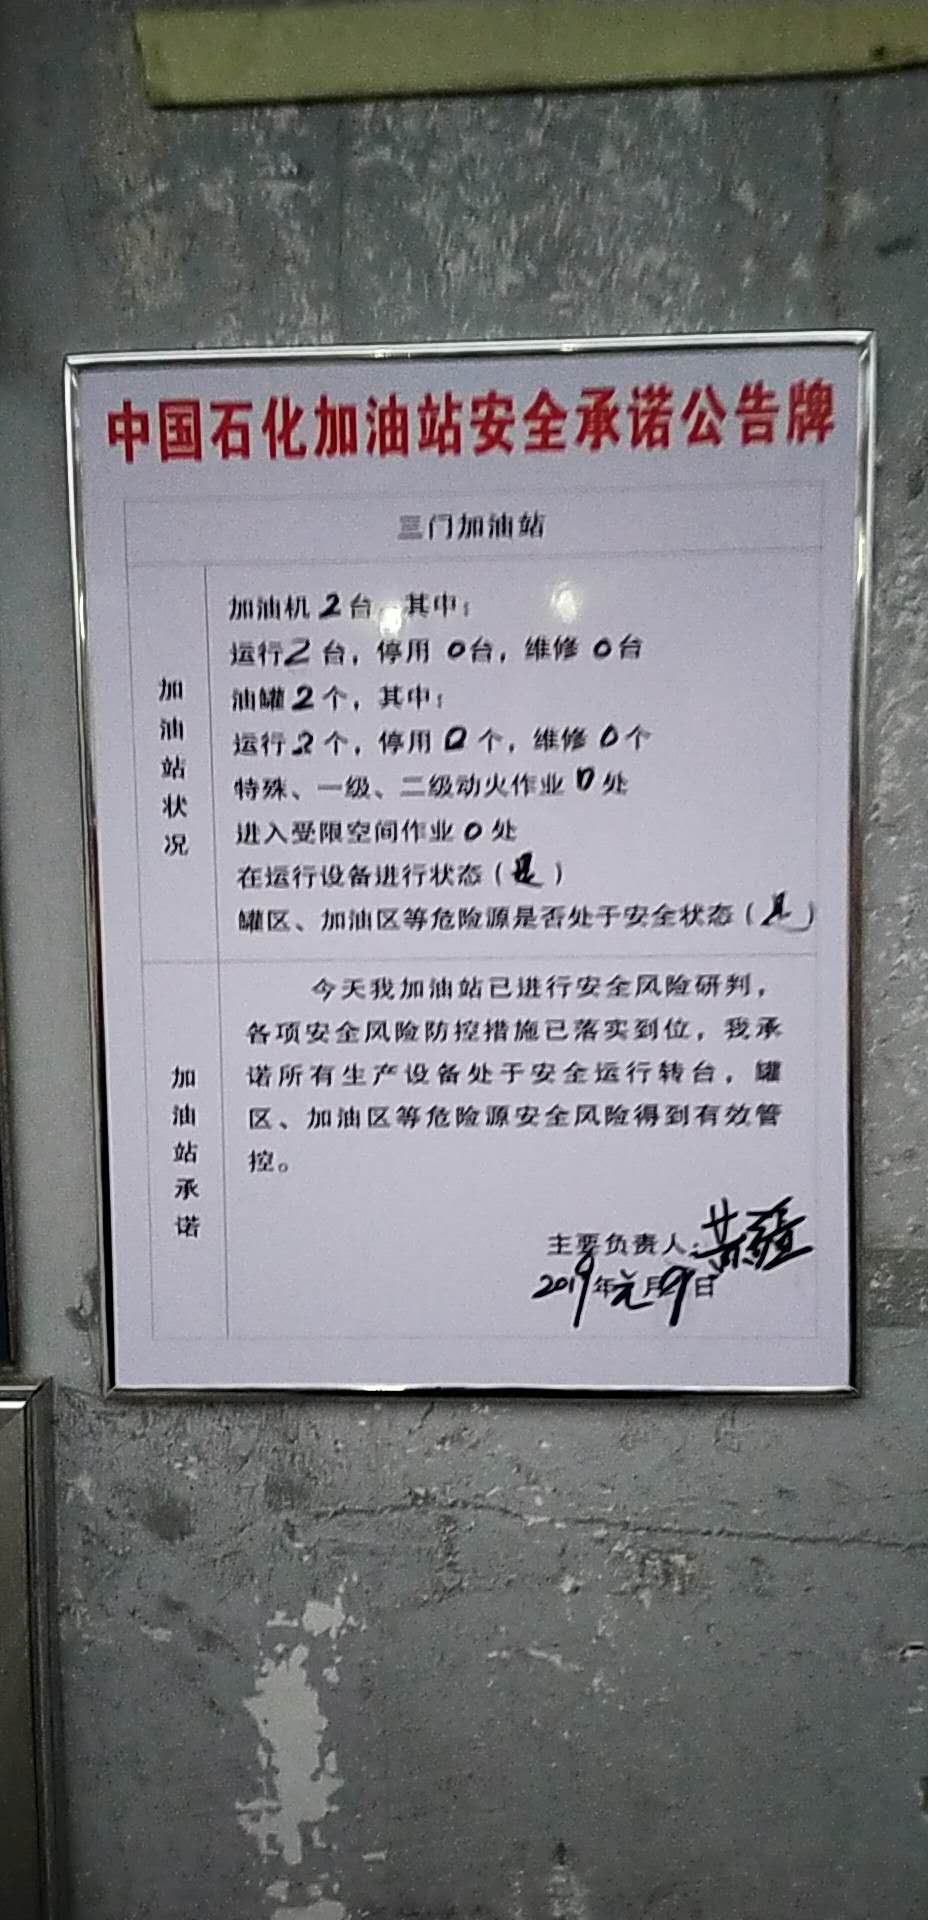 中国石化加油站安全承诺公告牌
三门加油站
加油站状况
加油机2台，其中：
运行2台，停用0台，维修0台
油罐2个，其中：
运行2个，停用0个，维修0个
特殊、一级、二级动火作业0处
进入受限空间作业0处
在运行设备进行状态（是）
罐区、加油区等危险源是否处于安全状态（是）
加油站承诺
今天我加油站已进行安全风险研判，
各项安全风险防控措施已落实到位，我承
诺所有生产设备处于安全运行转台，罐
区、加油区等危险源安全风险得到有效管
控。
主要负责人：
2019年元月9日